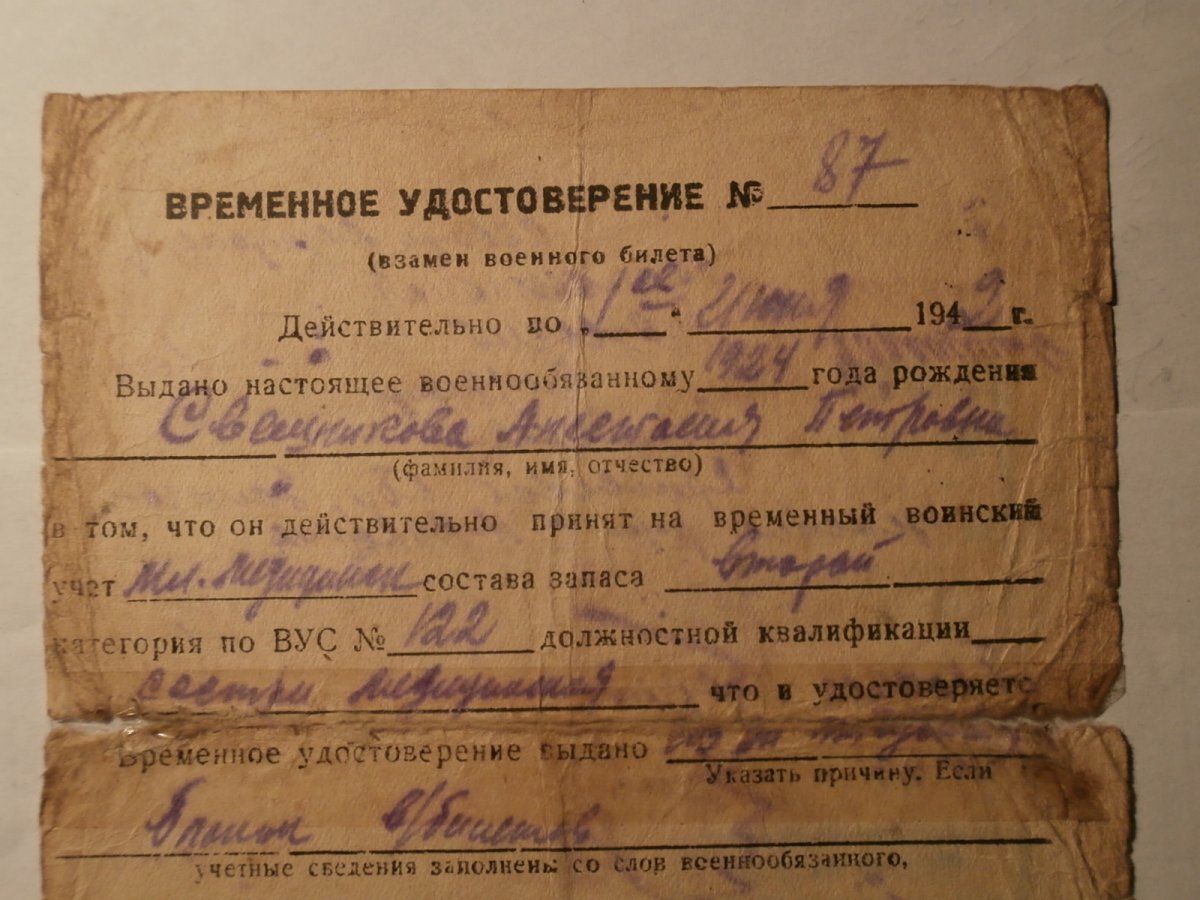 ВРЕМЕННОЕ УДОСТОВЕРЕНИЕ № 87
(взамен военного билета)
Действительно по „1ое“ июня 1949 г.
Выдано настоящее военнообязанному 1924 года рождения
Свешникова Анастасия Петровна
(фамилия, имя, отчество)
в том, что он действительно принят на временный воинский
учет мл. медицинск состава запаса второй
категория по ВУС № 122 должностной квалификации
сестра медицинская что и удостоверяетс
Временное удостоверение выдано
Указать причину. Если
бланок в/билетов
учетные сведения заполнены со слов военнообязанного,